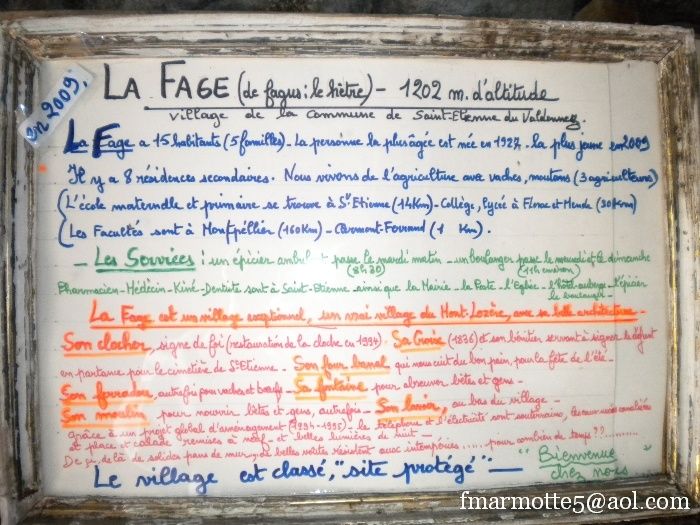 en 2009.
LA FAGE (de fagus : le hêtre) - 1202 m. d'altitude
village de la commune de Saint-Etienne du Valdonnez.
La Fage a 15 habitants (5 familles) - La personne la plus âgée est née en 1927 - la plus jeune en 2009
Il y a 8 résidences secondaires. Nous vivons de l'agriculture avec vaches, moutons (3 agriculteurs)
(L'école maternelle et primaire se trouve à St Etienne (14 Km) - Collège, Lycée à Florac et Mende (30 Km)
(Les Facultés sont à Montpellier (160 Km) - Clermont-Ferrand (1 Km).
- Les Services : un épicier ambul passe le mardi matin - un boulanger passe le mercredi et le dimanche
(8h30) (11h environ)
Pharmacien - Médecin - Kiné - Dentiste sont à Saint-Etienne ainsi que la Mairie - la Poste - l'Eglise - l'hôtel-auberge - l'épicier
le boulanger -
La Fage est un village exceptionnel, un vrai village du Mont-Lozère, avec sa belle architecture -
Son clocher, signe de foi (restauration de la cloche en 1994) - Sa Croix (1836) et son bénitier servant à signer le défunt
en partance pour le cimetière de St Etienne - Son four banal qui nous cuit du bon pain, pour la fête de l'été -
Son ferradou, autrefois pour vaches et bœufs - Sa fontaine pour abreuver bêtes et gens -
Son moulin pour nourrir bêtes et gens, autrefois - Son lavoir, au bas du village -
Grâce à un projet global d'aménagement (1994-1995) - le téléphone et l'électricité sont souterrains, les eaux usées canalisées
et place et calade remises à neuf - et belles lumières de nuit -
De ci, de là de solides pans de mur, de belles voûtes résistent aux intempéries ..... pour combien de temps ??.........
Le village est classé, "site protégé" -
" Bienvenue
chez nous "
fmarmotte5@aol.com